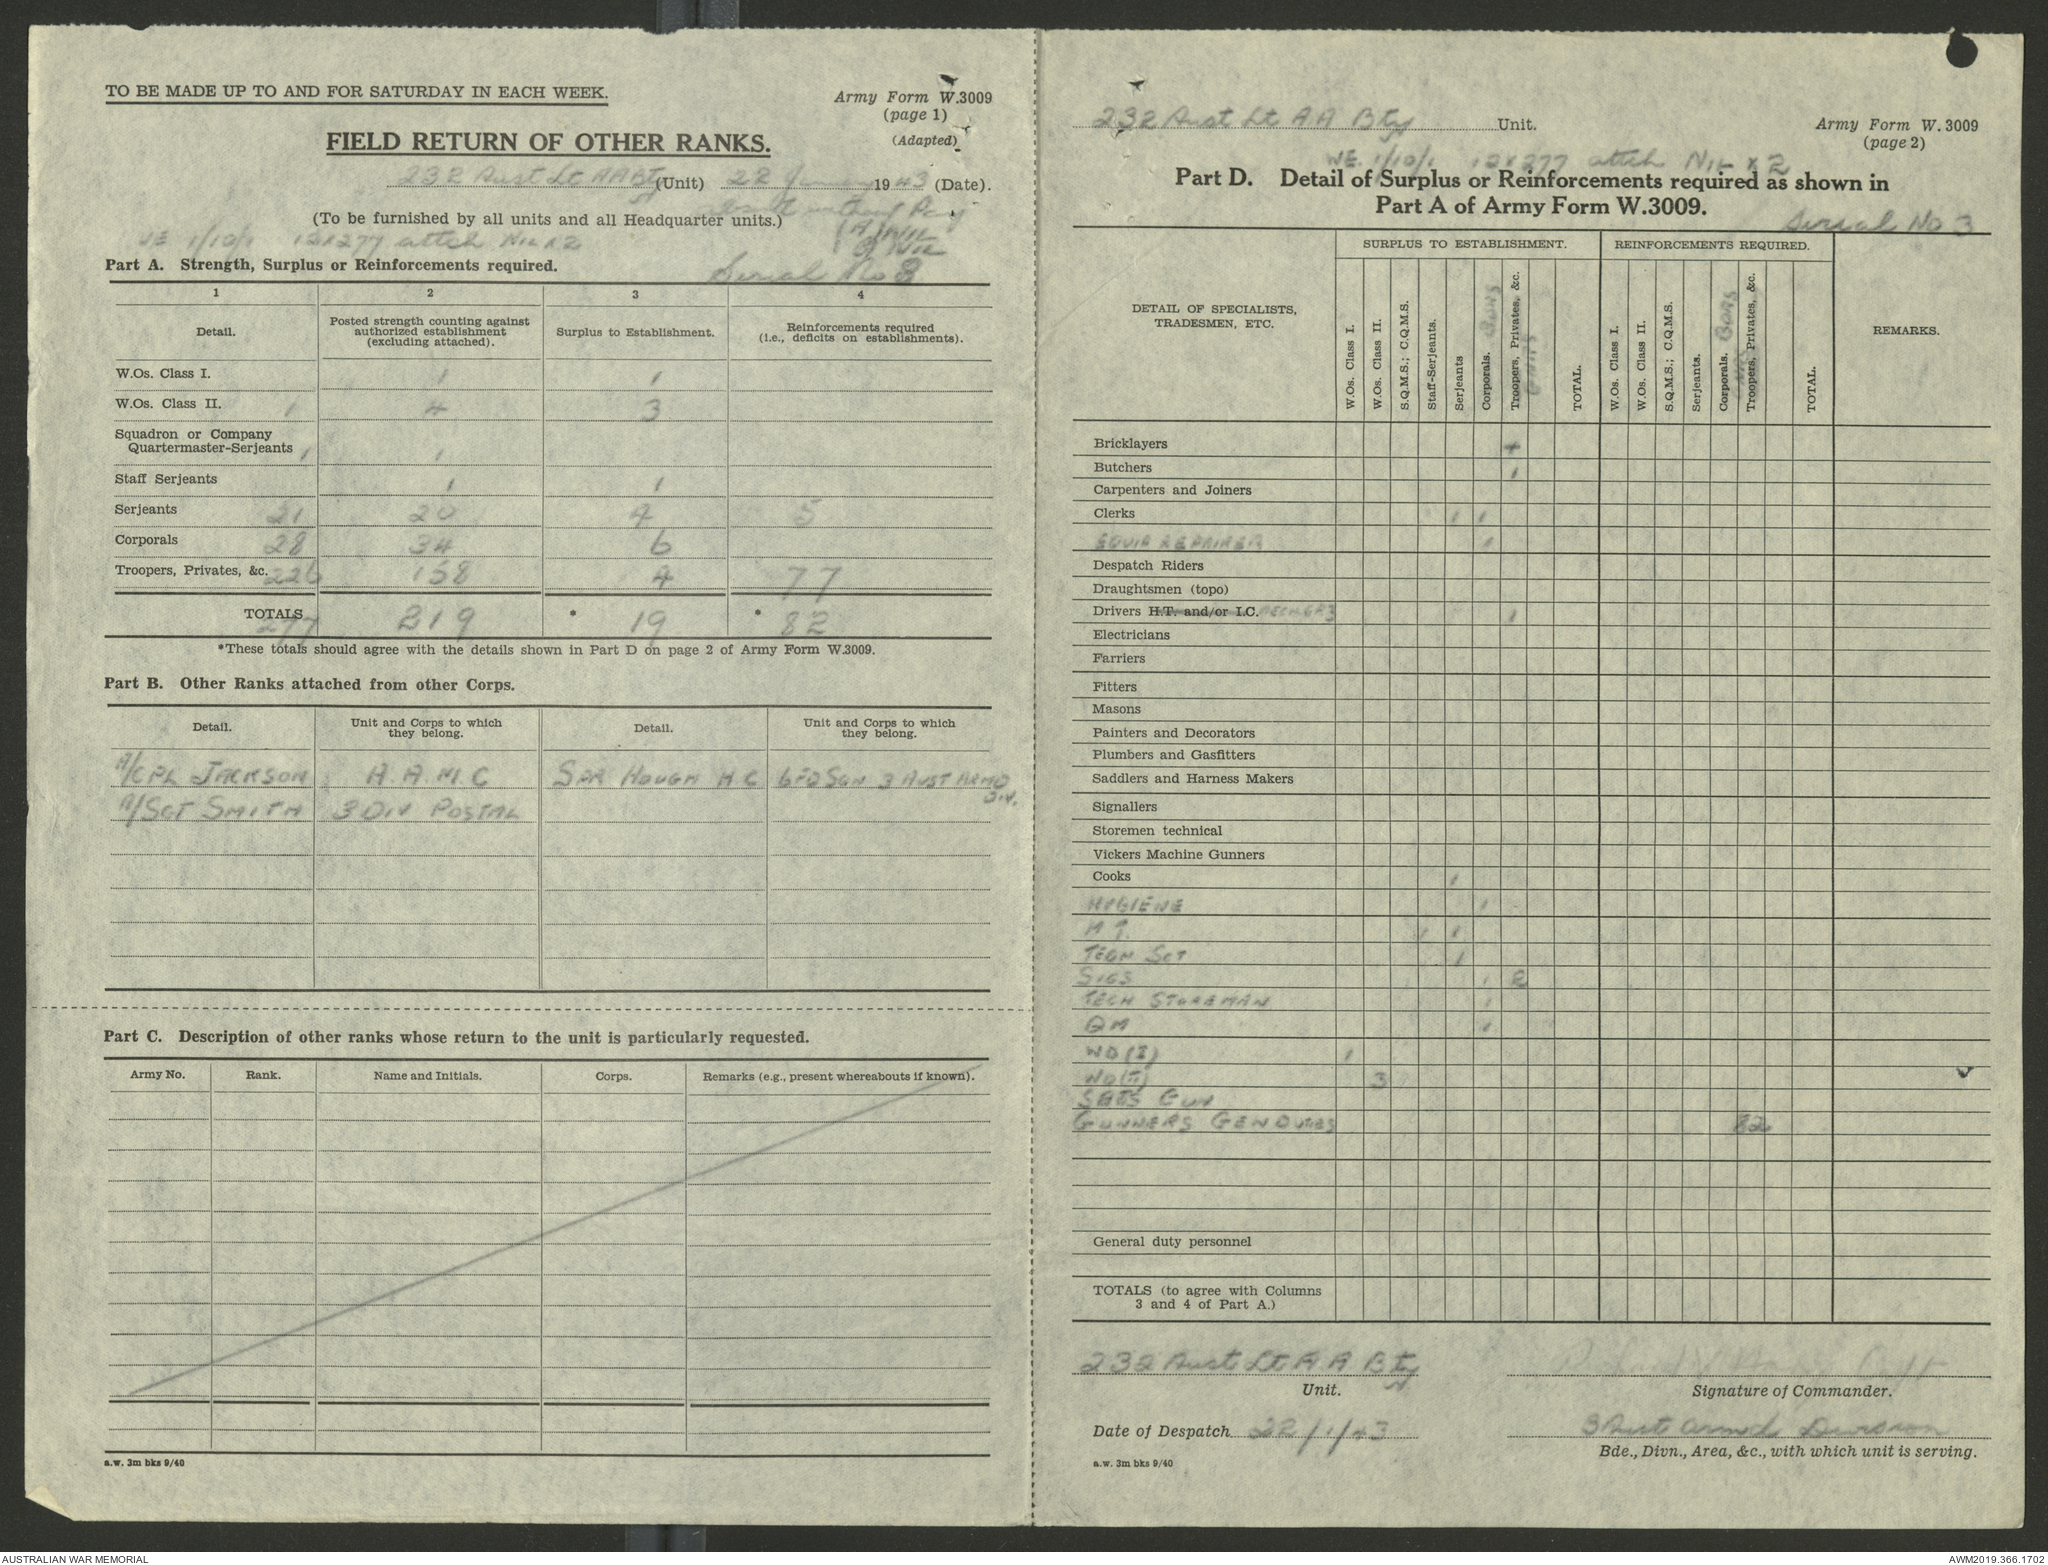 TO BE MADE UP TO AND FOR SATURDAY IN EACH WEEK.
Army Form W.3009
(page 1)
(Adapted)
FIELD RETURN OF OTHER RANKS.
232 Aust Lt AA Bty (Unit) 22 January 1943 (Date).
(To be furnished by all units and all Headquarter units.)
absent without Pay
(A) NIL
(B) NIL
WE 1/10/1 12 x 277 attch NIL x 2
Part A. Strength, Surplus or Reinforcements required.
Serial No 3
1 2 3 4
Detail. Posted strength counting against authorized establishment (excluding attached). Surplus to Establishment. Reinforcements required (i.e., deficits on establishments).
W.Os. Class I. 1 1
W.Os. Class II. 1 4 3
Squadron or Company
Quartermaster-Serjeants 1 1
Staff Serjeants 1 1
Serjeants 21 20 4 5
Corporals 28 34 6
Troopers, Privates, &c. 226 158 4 77
TOTALS 277 219 * 19 * 82
*These totals should agree with the details shown in Part D on page 2 of Army Form W.3009.
Part B. Other Ranks attached from other Corps.
Detail. Unit and Corps to which they belong. Detail. Unit and Corps to which they belong.
A/CPL JACKSON A.A.M.C SPR HOUGH H C 6 FD SQN 3 AUST ARMD DIV.
A/SGT SMITH 3 DIV POSTAL
Part C. Description of other ranks whose return to the unit is particularly requested.
Army No. Rank. Name and Initials. Corps. Remarks (e.g., present whereabouts if known).
a.w. 3m bks 9/40
232 Aust Lt AA Bty Unit.
Army Form W. 3009
(page 2)
WE. 1/10/1 12 x 277 attch NIL x 2
Part D. Detail of Surplus or Reinforcements required as shown in
Part A of Army Form W.3009.
Serial No 3
DETAIL OF SPECIALISTS, TRADESMEN, ETC.
SURPLUS TO ESTABLISHMENT. REINFORCEMENTS REQUIRED.
W.Os. Class I. W.Os. Class II. S.Q.M.S.; C.Q.M.S. Staff-Serjeants. Serjeants Corporals. BDRS Troopers, Privates, &c. GNRS TOTAL.
W.Os. Class I. W.Os. Class II. S.Q.M.S.; C.Q.M.S. Serjeants. Corporals. BDRS Troopers, Privates, &c. GNRS TOTAL.
REMARKS.
Bricklayers
Butchers 1
Carpenters and Joiners
Clerks 1 1
EQUIP REPAIRER 1
Despatch Riders
Draughtsmen (topo)
Drivers H.T. and/or I.C. MECH GR3 1
Electricians
Farriers
Fitters
Masons
Painters and Decorators
Plumbers and Gasfitters
Saddlers and Harness Makers
Signallers
Storemen technical
Vickers Machine Gunners
Cooks 1
HYGIENE 1
M T. 1 1
TECH SGT 1
SIGS 1 2
TECH STOREMAN 1
QM 1
WO (I) 1
WO (II) 3
SGTS GUN
GUNNERS GEN DUTIES 82
General duty personnel
TOTALS (to agree with Columns
3 and 4 of Part A.)
232 Aust Lt AA Bty
Unit.
Capt
Signature of Commander.
Date of Despatch 22/1/43
3 Aust Armd Division
Bde., Divn., Area, &c., with which unit is serving.
a.w. 3m bks 9/40
AUSTRALIAN WAR MEMORIAL
AWM2019.366.1702